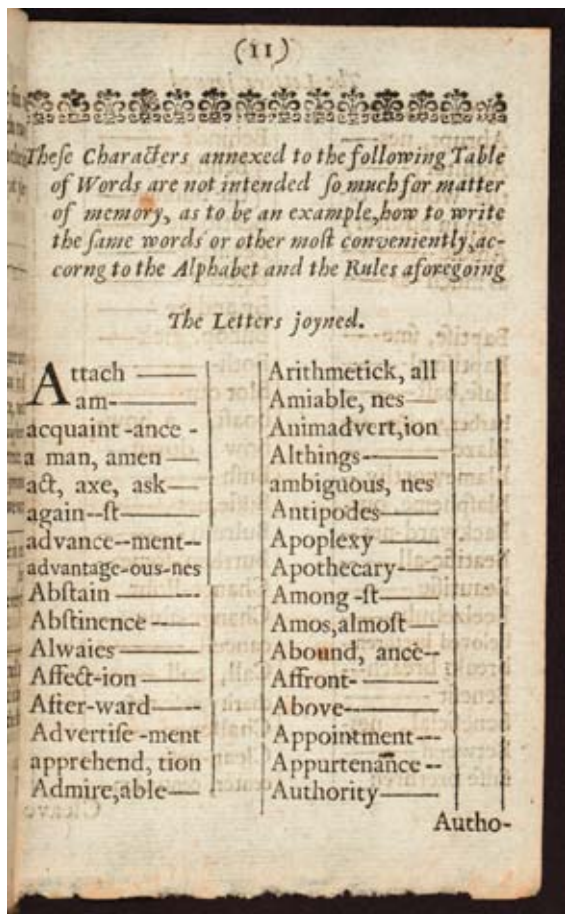 (11)
Theſe Characters annexed to the following Table
of Words are not intended ſo much for matter
of memory, as to be an example, how to write
the ſame words or other moſt conveniently, ac-
corng to the Alphabet and the Rules aforegoing
The Letters joyned.
Attach ———
am- ———
acquaint -ance -
a man, amen —
act, axe, ask —
again--ſt ———
advance--ment--
advantage-ous-nes
Abſtain ———
Abſtinence ——
Alwaies ———
Affect-ion ———
After-ward ——
Advertiſe -ment
apprehend, tion
Admire,able —
Arithmetick, all
Amiable, nes —
Animadvert,ion
Althings- ———
ambiguous, nes
Antipodes ——
Apoplexy ——
Apothecary ——
Among -ſt ——
Amos,almoſt —
Abound, ance--
Affront- ———
Above- ———
Appointment --
Appurtenance --
Authority ———
Autho-